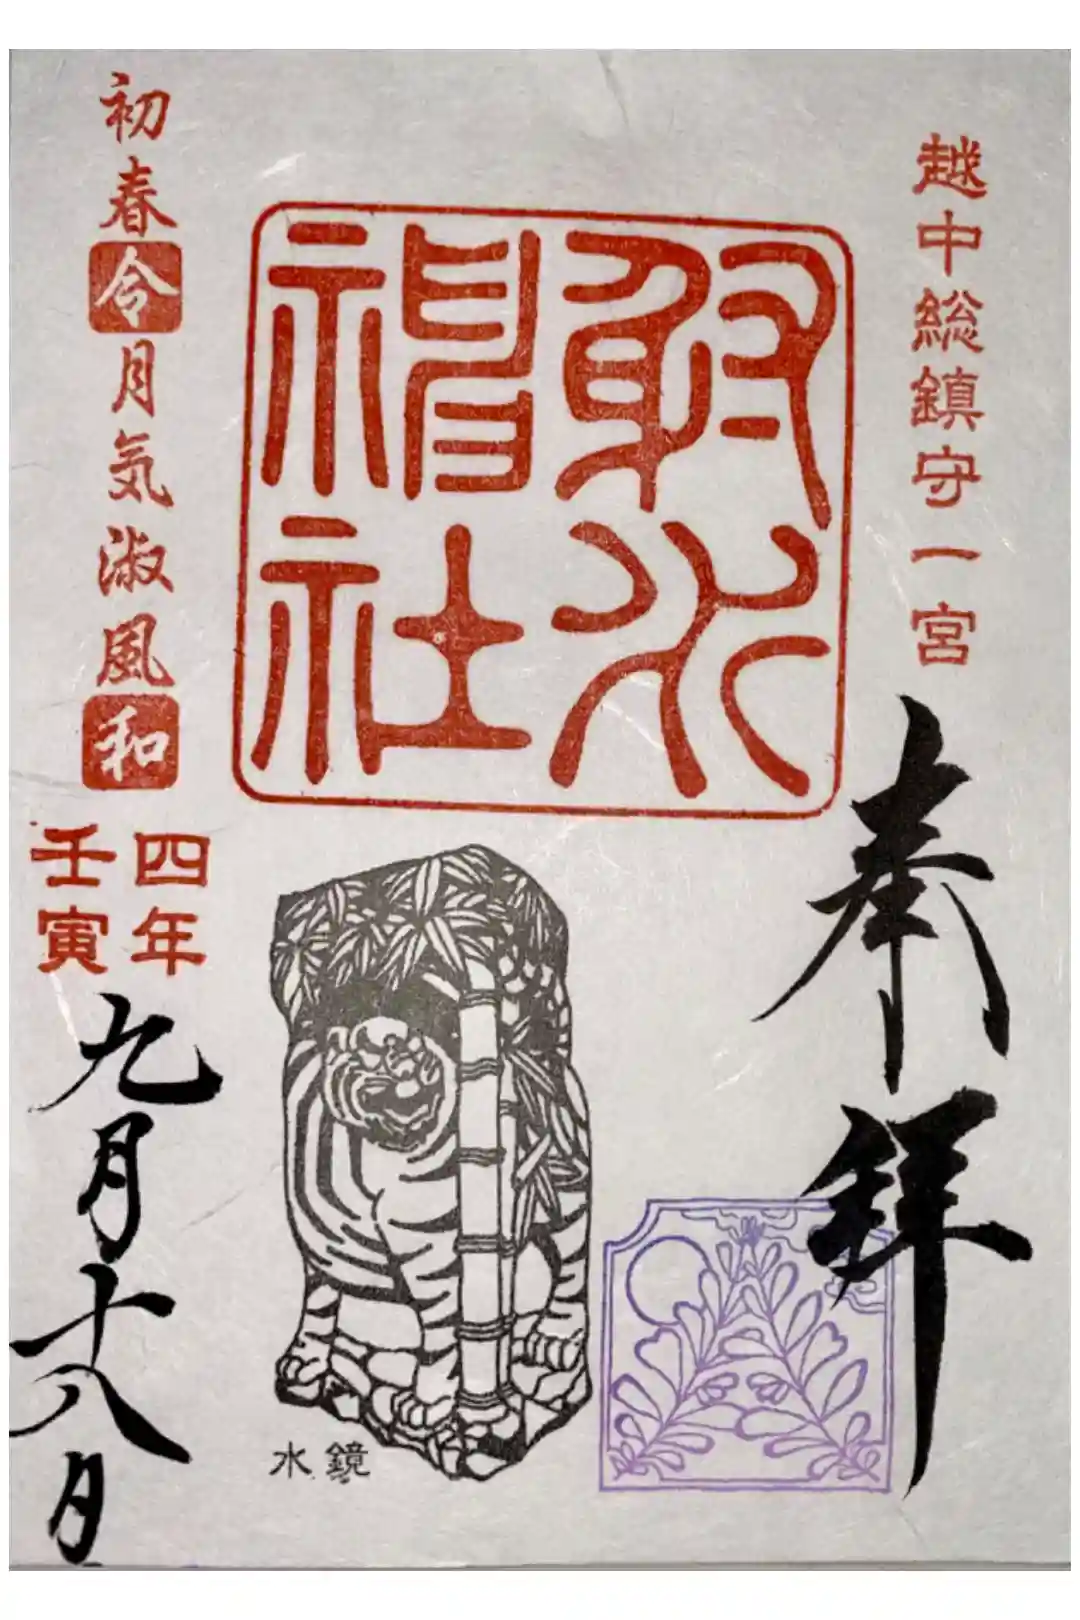 越中総鎮守一宮
奉拝
射水
神社
初春令月気淑風和
四年
壬寅
九月十八日
水鏡